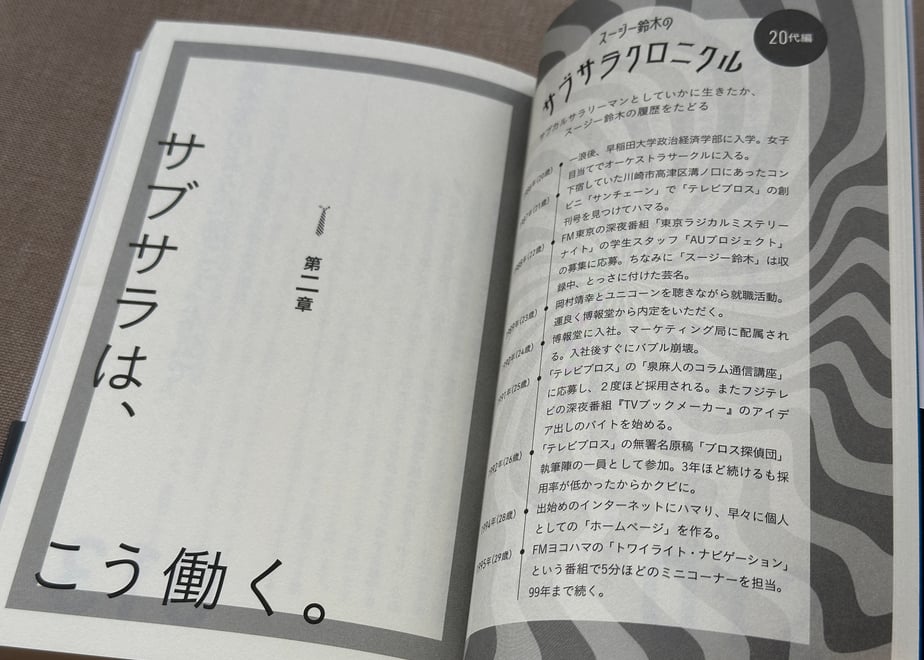 サブサラは、
第二章
こう働く。
スージー鈴木の
サブサラクロニクル
20代編
サブカルサラリーマンとしていかに生きたか、
スージー鈴木の履歴をたどる
一浪後、早稲田大学政治経済学部に入学。女子
目当てでオーケストラサークルに入る。
下宿していた川崎市高津区溝ノ口にあったコン
ビニ「サンチェーン」で「テレビブロス」の創
刊号を見つけてハマる。
FM東京の深夜番組「東京ラジカルミステリー
ナイト」の学生スタッフ「AUプロジェクト」
の募集に応募。ちなみに「スージー鈴木」は収
録中、とっさに付けた芸名。
岡村靖幸とユニコーンを聴きながら就職活動。
運良く博報堂から内定をいただく。
博報堂に入社。マーケティング局に配属され
る。入社後すぐにバブル崩壊。
「テレビブロス」の「泉麻人のコラム通信講座」
に応募し、２度ほど採用される。またフジテレ
ビの深夜番組『TVブックメーカー』のアイデ
ア出しのバイトを始める。
「テレビブロス」の無署名原稿「ブロス探偵団」
執筆陣の一員として参加。3年ほど続けるも採
用率が低かったからかクビに。
出始めのインターネットにハマり、早々に個人
としての「ホームページ」を作る。
FMヨコハマの「トワイライト・ナビゲーション」
という番組で5分ほどのミニコーナーを担当。
99年まで続く。
(20歳)
(21歳)
(22歳)
(23歳)
(24歳)
(25歳)
(26歳)
(28歳)
(29歳)